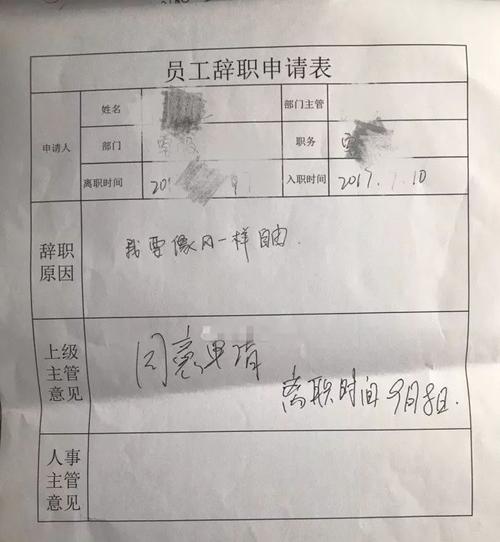 员工辞职申请表
申请人
姓名
部门主管
部门
职务
离职时间 201
入职时间 2017.1.10
辞职原因
我要像风一样自由.
上级主管意见
同意申请
离职时间9月8日.
人事主管意见